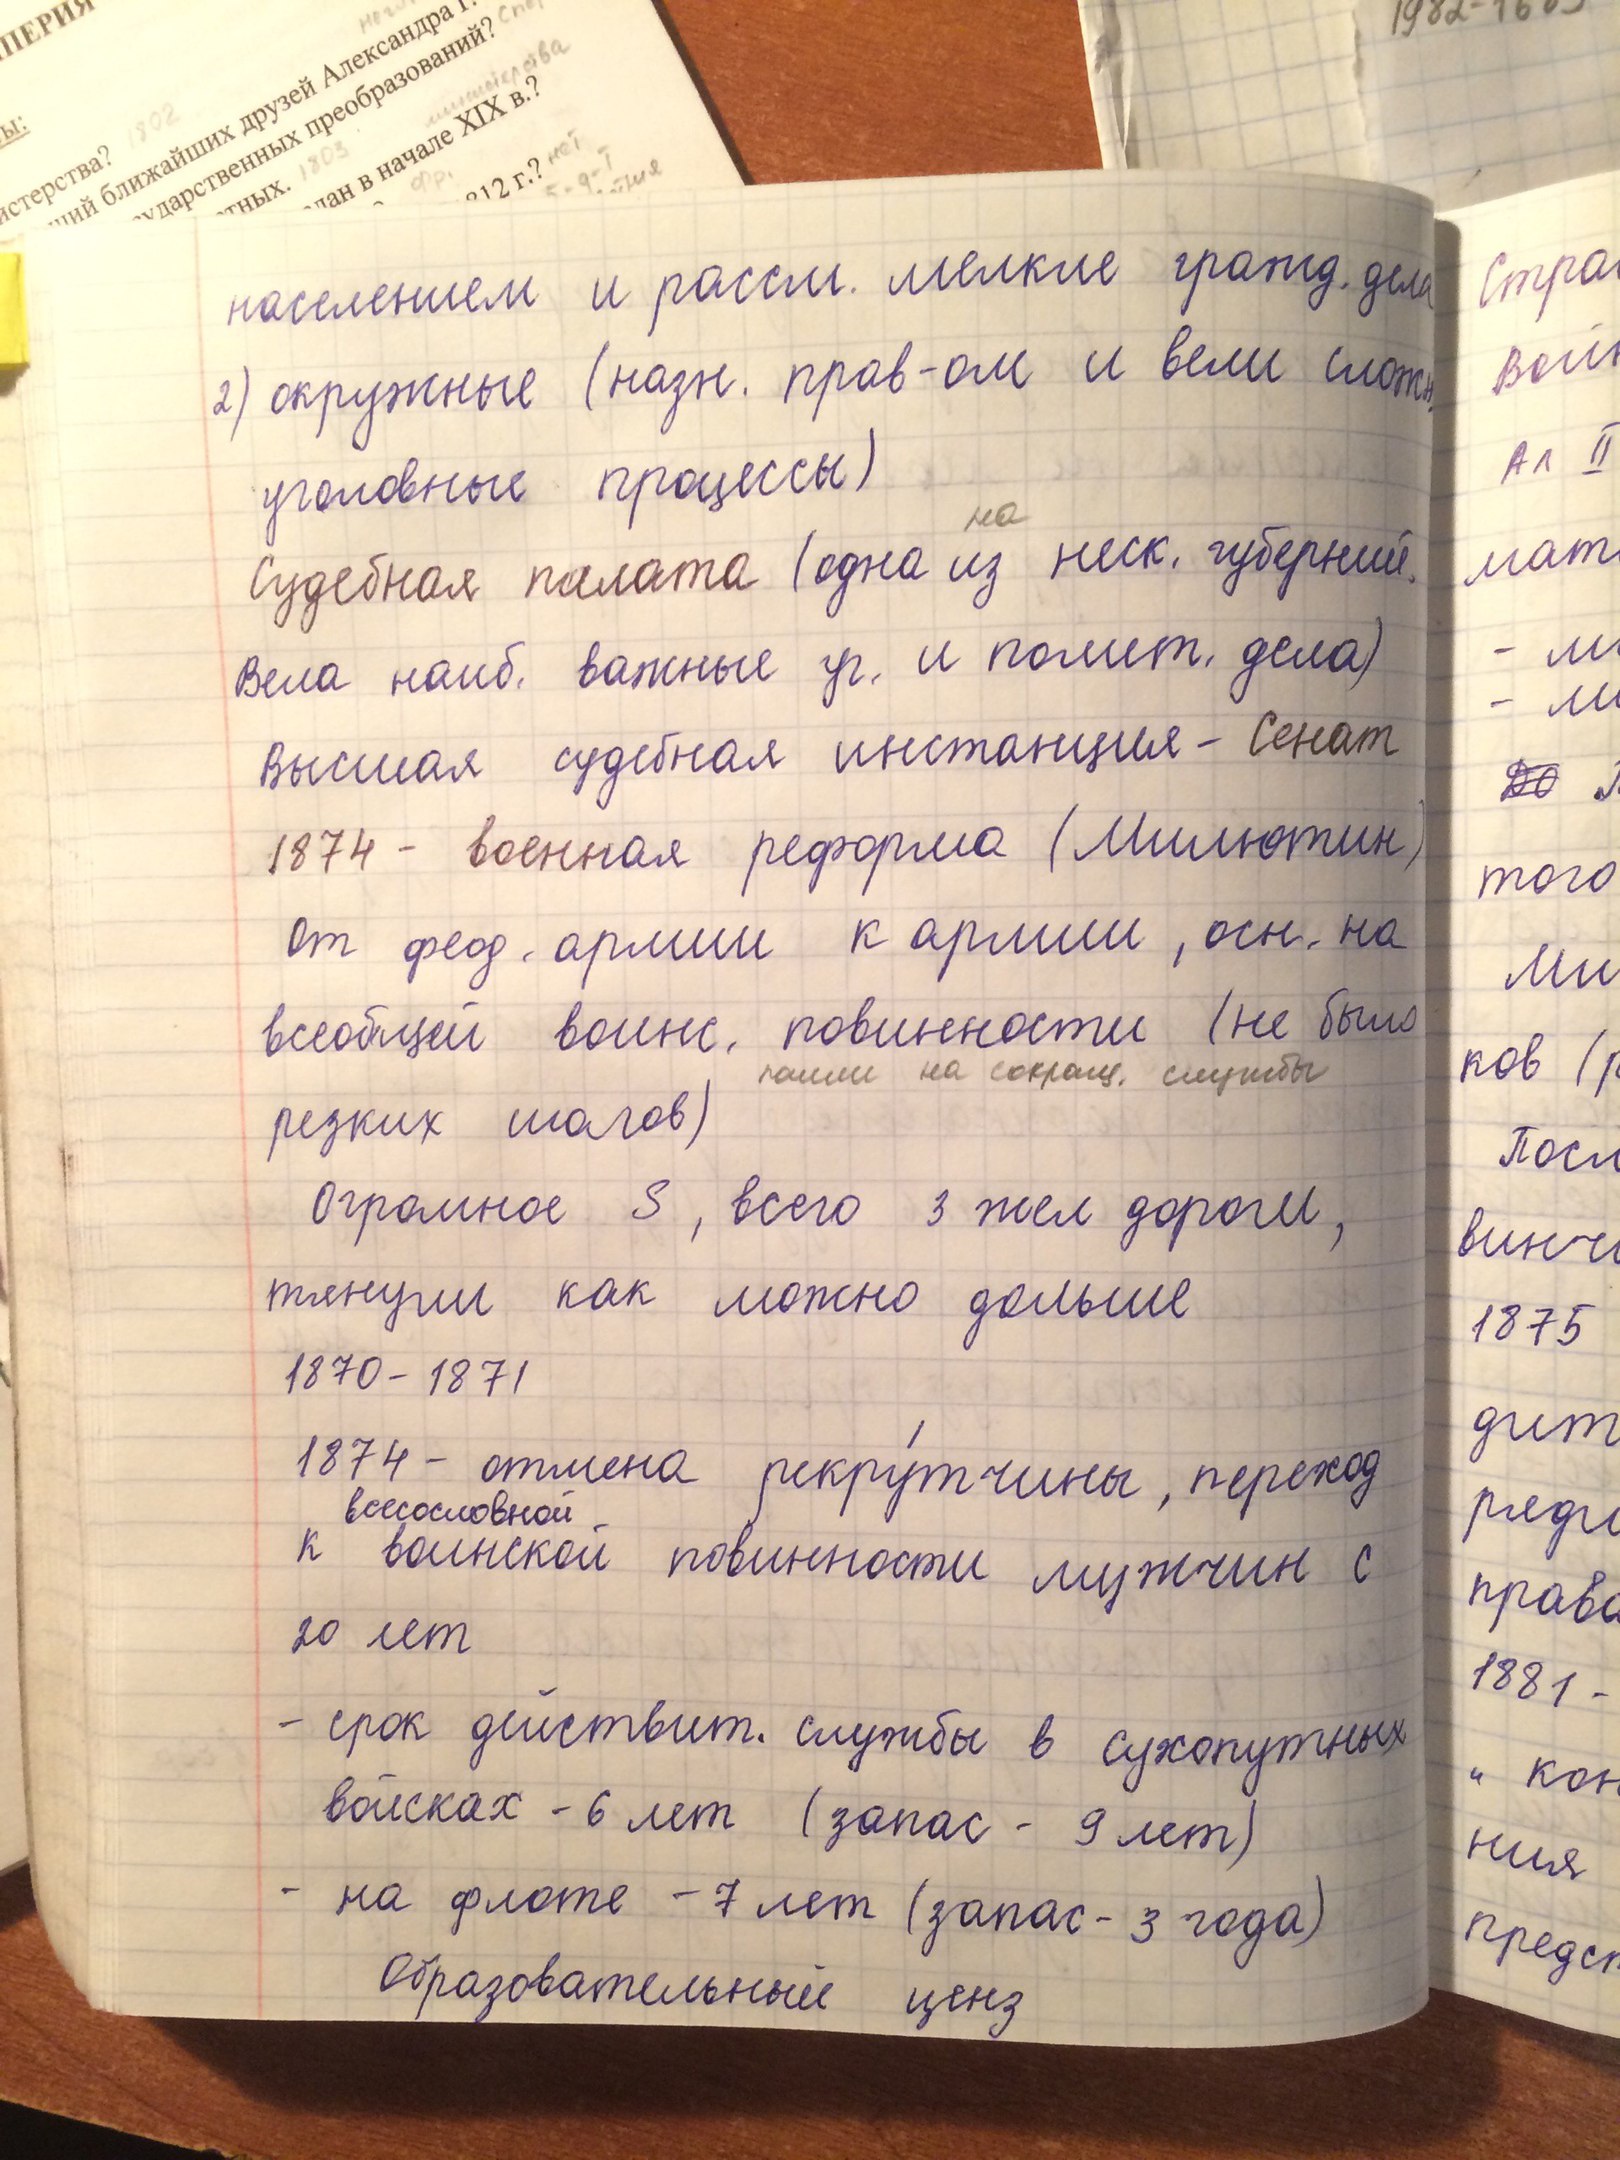 ПЕРИЯ
1802
истерства?
ближайших друзей Александра I.
государственных преобразований?
министерства
1803
в начале XIX в.?
фр.
нет
1982-1689
населением и рассм. мелкие гражд. дела
2) окружные (назн. прав-ом и вели сложн.
уголовные процессы)
на
Судебная палата (одна из неск. губерний.
Вела наиб. важные уг. и полит. дела)
Высшая судебная инстанция - Сенат
1874 - военная реформа (Милютин)
От феод. армии к армии, осн. на
всеобщей воинс. повинности (не было
пошли на сокращ. службы
резких шагов)
Огромное S, всего 3 жел дороги,
тянули как можно дольше
1870 - 1871
1874 - отмена рекру́тчины, переход
всесословной
к воинской повинности мужчин с
20 лет
- срок действит. службы в сухопутных
войсках - 6 лет (запас - 9 лет)
- на флоте - 7 лет (запас - 3 года)
Образовательный ценз
Ал II
того
ков
1875
1881 -
ния